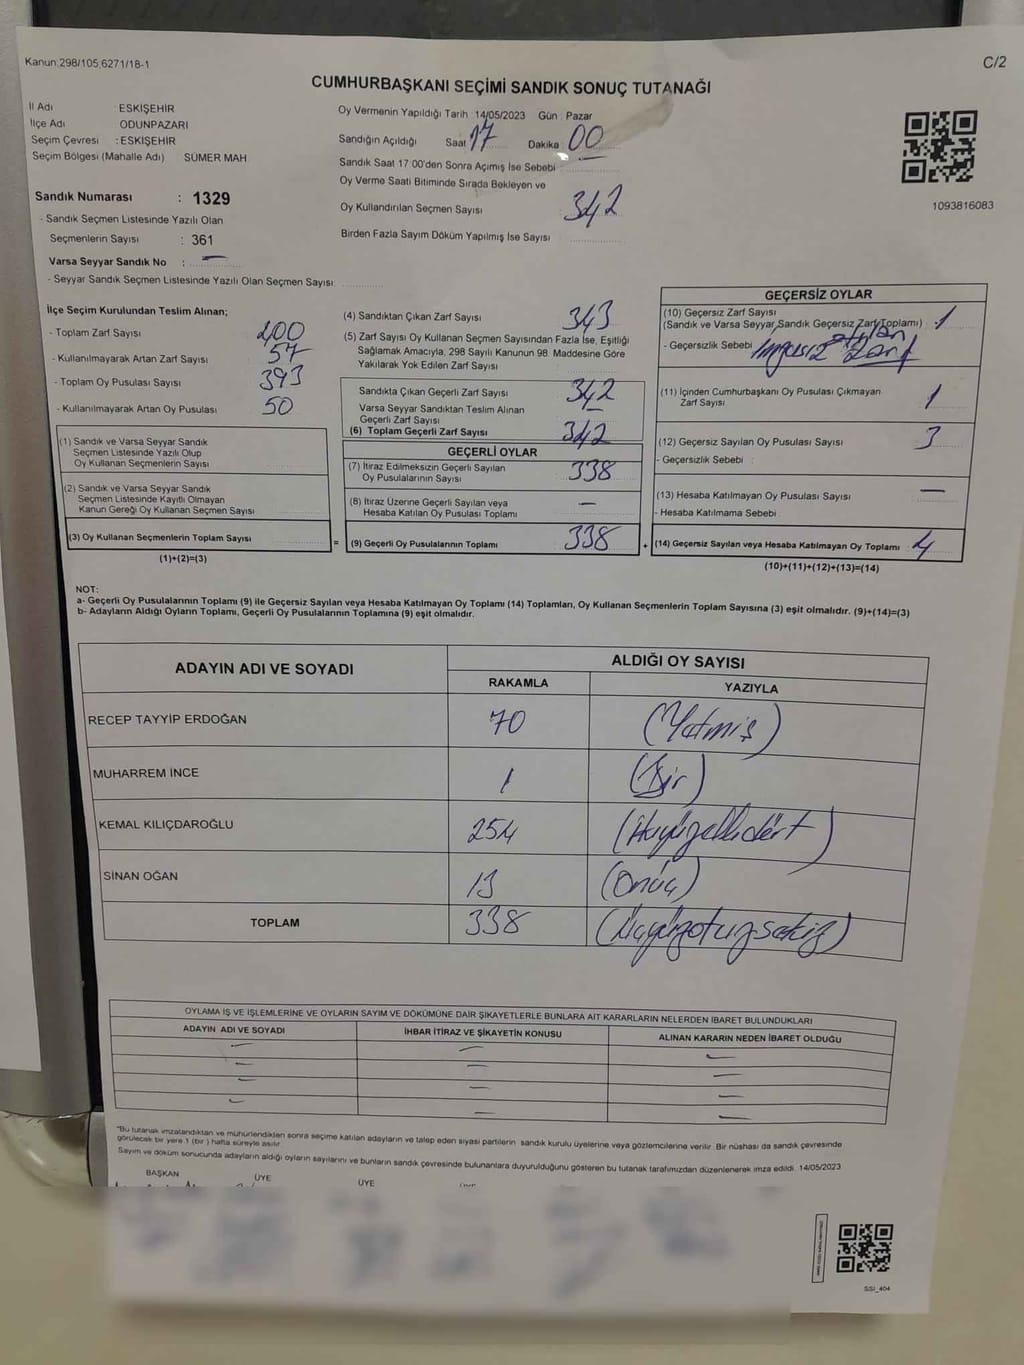 Kanun:298/105,6271/18-1
C/2
CUMHURBAŞKANI SEÇİMİ SANDIK SONUÇ TUTANAĞI
İl Adı : ESKİŞEHİR
İlçe Adı : ODUNPAZARI
Seçim Çevresi : ESKİŞEHİR
Seçim Bölgesi (Mahalle Adı) SÜMER MAH.
Sandık Numarası : 1329
- Sandık Seçmen Listesinde Yazılı Olan
Seçmenlerin Sayısı : 361
Varsa Seyyar Sandık No : —
- Seyyar Sandık Seçmen Listesinde Yazılı Olan Seçmen Sayısı
Oy Vermenin Yapıldığı Tarih : 14/05/2023 Gün : Pazar
Sandığın Açıldığı Saat 17 Dakika 00
Sandık Saat 17:00'den Sonra Açılmış İse Sebebi
Oy Verme Saati Bitiminde Sırada Bekleyen ve
Oy Kullandırılan Seçmen Sayısı 342
Birden Fazla Sayım Döküm Yapılmış İse Sayısı
1093816083
İlçe Seçim Kurulundan Teslim Alınan;
- Toplam Zarf Sayısı 400
- Kullanılmayarak Artan Zarf Sayısı 57
- Toplam Oy Pusulası Sayısı 393
- Kullanılmayarak Artan Oy Pusulası 50
(1) Sandık ve Varsa Seyyar Sandık
Seçmen Listesinde Yazılı Olup
Oy Kullanan Seçmenlerin Sayısı
(2) Sandık ve Varsa Seyyar Sandık
Seçmen Listesinde Kayıtlı Olmayan
Kanun Gereği Oy Kullanan Seçmen Sayısı
(3) Oy Kullanan Seçmenlerin Toplam Sayısı
(1)+(2)=(3)
=
(4) Sandıktan Çıkan Zarf Sayısı 343
(5) Zarf Sayısı Oy Kullanan Seçmen Sayısından Fazla İse, Eşitliği
Sağlamak Amacıyla, 298 Sayılı Kanunun 98. Maddesine Göre
Yakılarak Yok Edilen Zarf Sayısı
Sandıkta Çıkan Geçerli Zarf Sayısı 342
Varsa Seyyar Sandıktan Teslim Alınan
Geçerli Zarf Sayısı —
(6) Toplam Geçerli Zarf Sayısı 342
GEÇERLİ OYLAR
(7) İtiraz Edilmeksizin Geçerli Sayılan
Oy Pusulalarının Sayısı 338
(8) İtiraz Üzerine Geçerli Sayılan veya
Hesaba Katılan Oy Pusulası Toplamı —
(9) Geçerli Oy Pusulalarının Toplamı 338
+
GEÇERSİZ OYLAR
(10) Geçersiz Zarf Sayısı
(Sandık ve Varsa Seyyar Sandık Geçersiz Zarf Toplamı) 1
- Geçersizlik Sebebi : atılan
zarf
(11) İçinden Cumhurbaşkanı Oy Pusulası Çıkmayan
Zarf Sayısı 1
(12) Geçersiz Sayılan Oy Pusulası Sayısı 3
- Geçersizlik Sebebi :
(13) Hesaba Katılmayan Oy Pusulası Sayısı —
- Hesaba Katılmama Sebebi :
(14) Geçersiz Sayılan veya Hesaba Katılmayan Oy Toplamı 4
(10)+(11)+(12)+(13)=(14)
NOT:
a- Geçerli Oy Pusulalarının Toplamı (9) ile Geçersiz Sayılan veya Hesaba Katılmayan Oy Toplamı (14) Toplamları, Oy Kullanan Seçmenlerin Toplam Sayısına (3) eşit olmalıdır. (9)+(14)=(3)
b- Adayların Aldığı Oyların Toplamı, Geçerli Oy Pusulalarının Toplamına (9) eşit olmalıdır.
ADAYIN ADI VE SOYADI
ALDIĞI OY SAYISI
RAKAMLA YAZIYLA
RECEP TAYYİP ERDOĞAN 70 (Yetmiş)
MUHARREM İNCE 1 (Bir)
KEMAL KILIÇDAROĞLU 254 (İkiyüzellidört)
SİNAN OĞAN 13 (Onüç)
TOPLAM 338 (Üçyüzotuzsekiz)
OYLAMA İŞ VE İŞLEMLERİNE VE OYLARIN SAYIM VE DÖKÜMÜNE DAİR ŞİKAYETLERLE BUNLARA AİT KARARLARIN NELERDEN İBARET BULUNDUKLARI
ADAYIN ADI VE SOYADI İHBAR İTİRAZ VE ŞİKAYETİN KONUSU ALINAN KARARIN NEDEN İBARET OLDUĞU
— — —
— — —
— — —
— — —
"Bu tutanak imzalandıktan ve mühürlendikten sonra seçime katılan adayların ve talep eden siyasi partilerin sandık kurulu üyelerine veya gözlemcilerine verilir. Bir nüshası da sandık çevresinde
görülecek bir yere 1 (bir) hafta süreyle asılır.
Sayım ve döküm sonucunda adayların aldığı oyların sayılarını ve bunların sandık çevresinde bulunanlara duyurulduğunu gösteren bu tutanak tarafımızdan düzenlenerek imza edildi. 14/05/2023
BAŞKAN ÜYE ÜYE
SSI_404